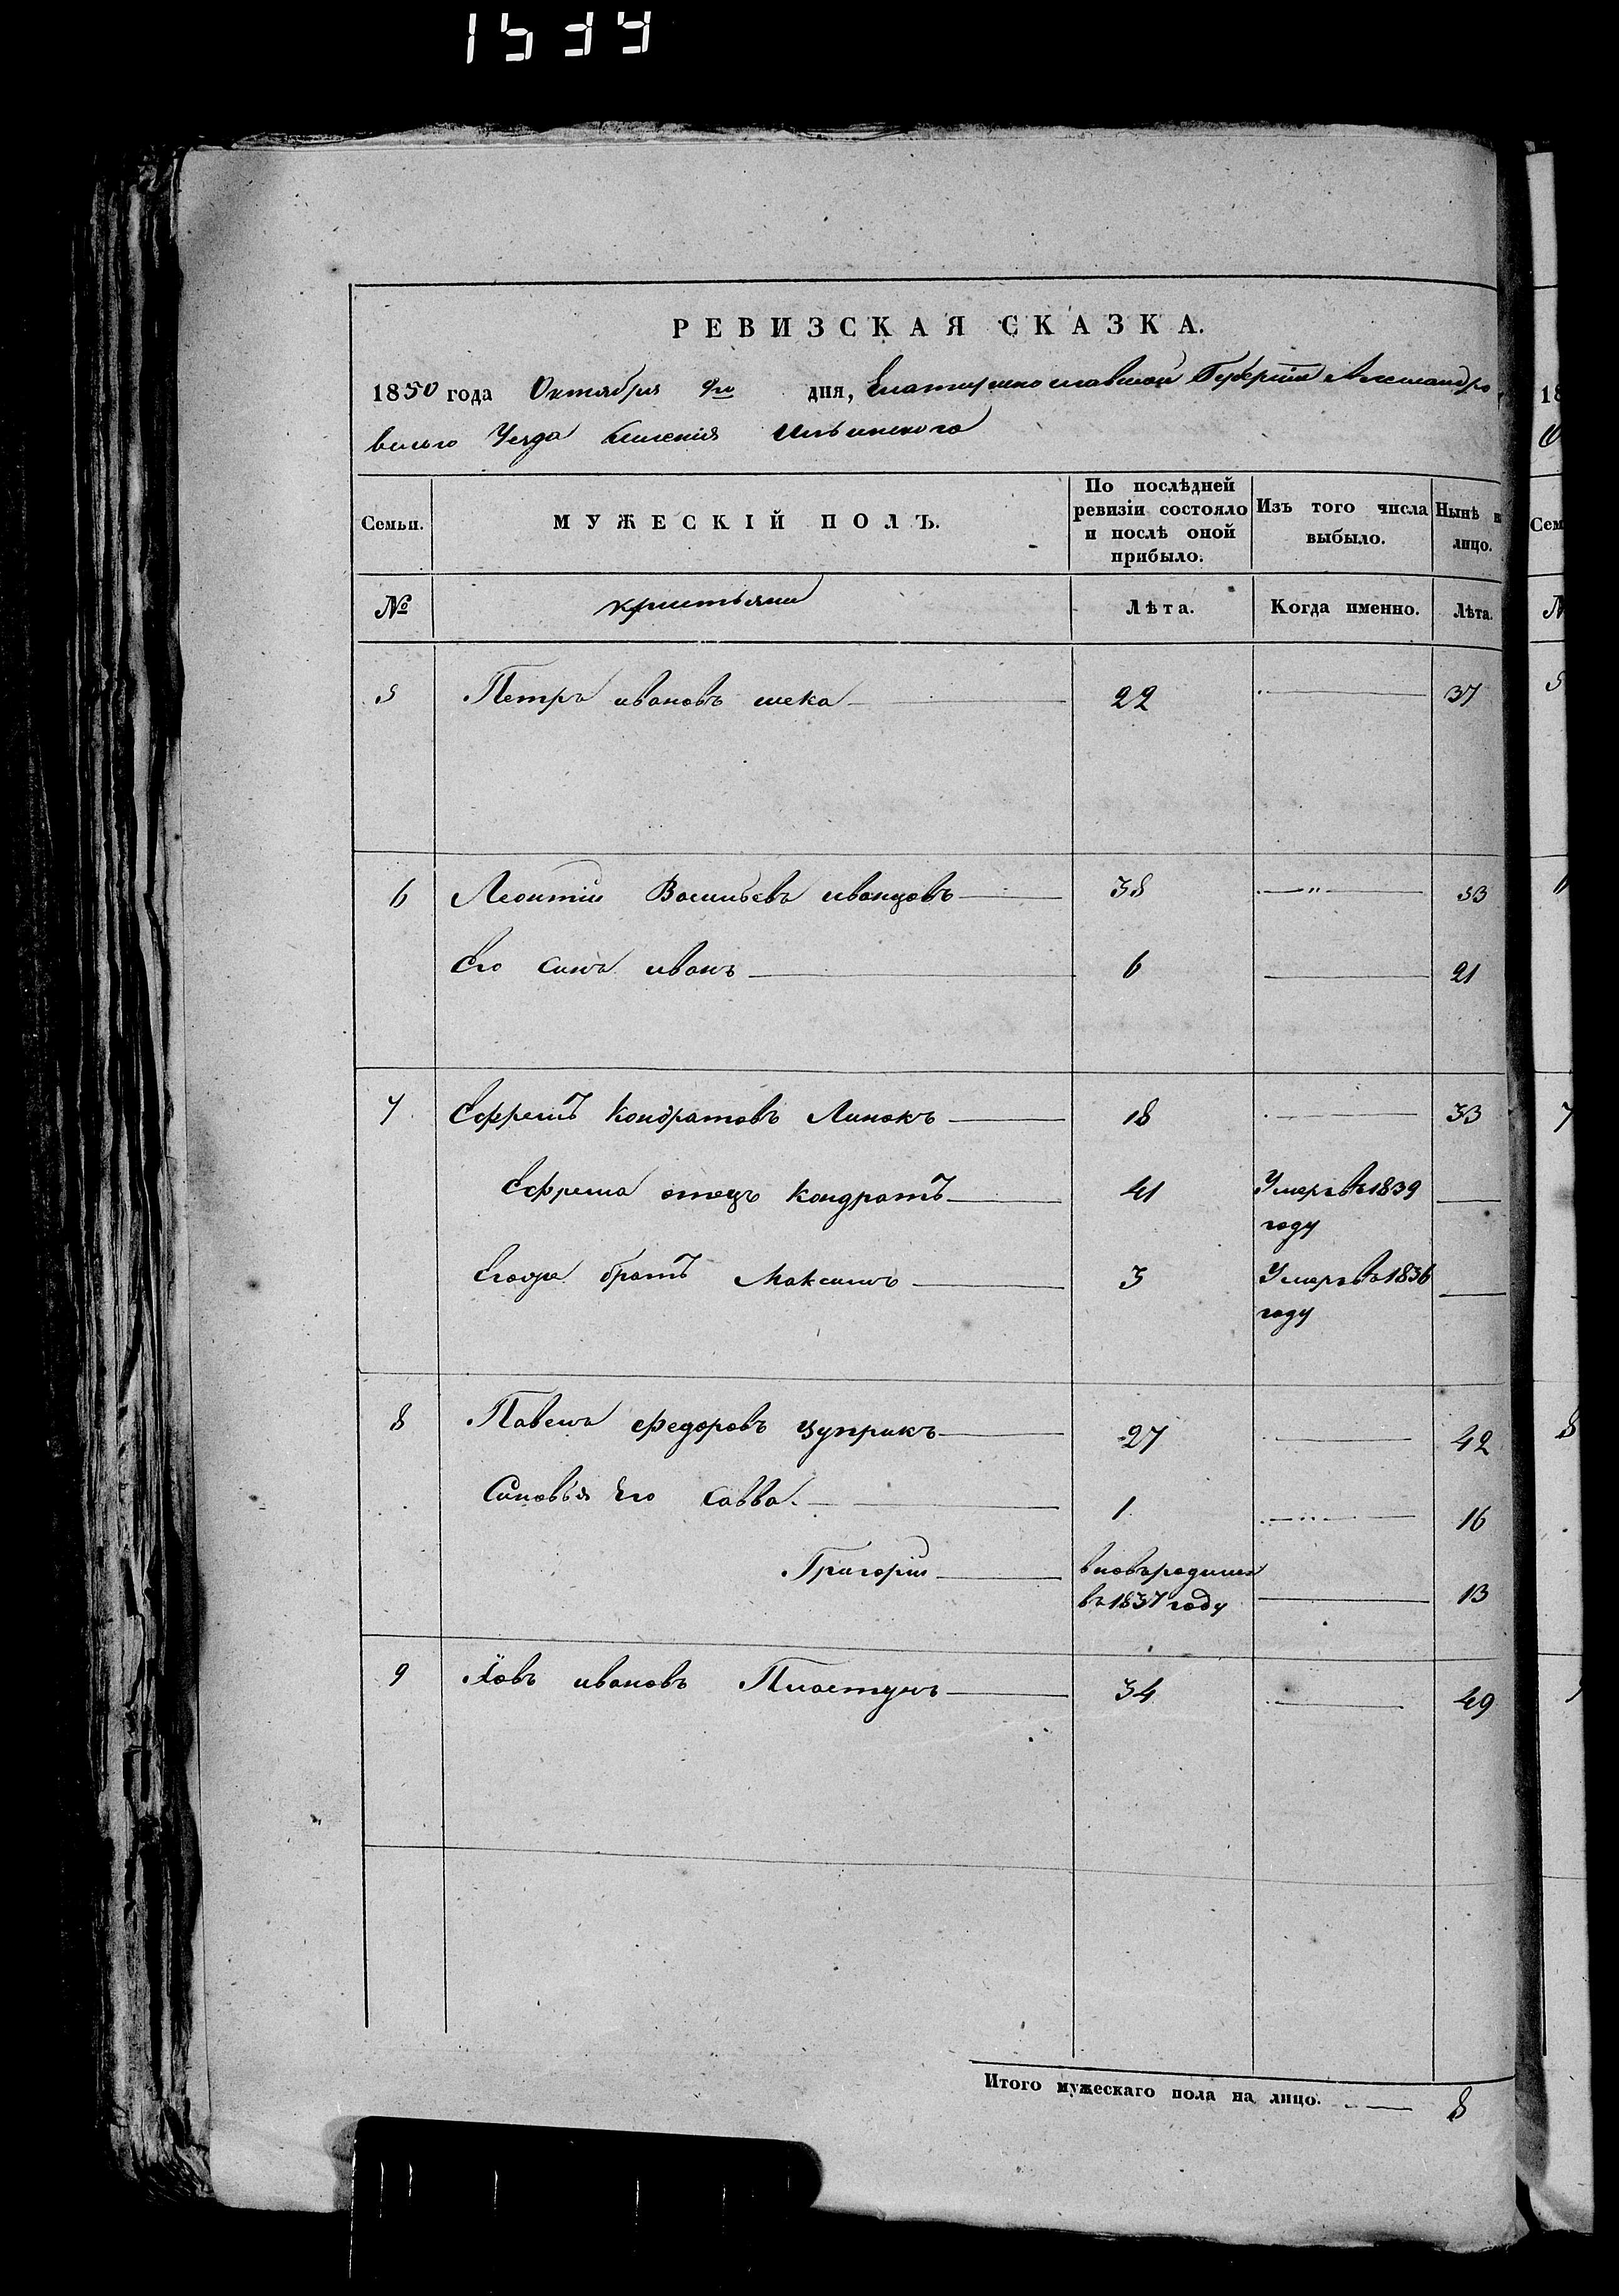 РЕВИЗСКАЯ СКАЗКА.
1850 года Октября 9го дня, Екатеринославской Губерніи Александро
вскаго Уезда селенія Ильинского
Семьи. МУЖЕСКІЙ ПОЛЪ. По послѣдней ревизіи состояло и послѣ оной прибыло. Изъ того числа выбыло. Нынѣ на лицо.
№ крестьяни Лѣта. Когда именно. Лѣта.
5 Петръ ивановъ шека 22 37
6 Леонтій Васильевъ иванцовъ 38 53
Его синъ иванъ 6 21
7 Ефремъ Кондратовъ Линокъ 18 33
Ефрема отецъ Кондратъ 41 Умеръ въ 1839
году
Егоже братъ Максимъ 3 Умеръ въ 1836
году
8 Павелъ Федоровъ цуприкъ 27 42
Синовъя Его Савва 1 16
Григорій вновьродился
въ 1837 году 13
9 Іовъ ивановъ Пластунъ 34 49
Итого мужескаго пола на лицо. 8